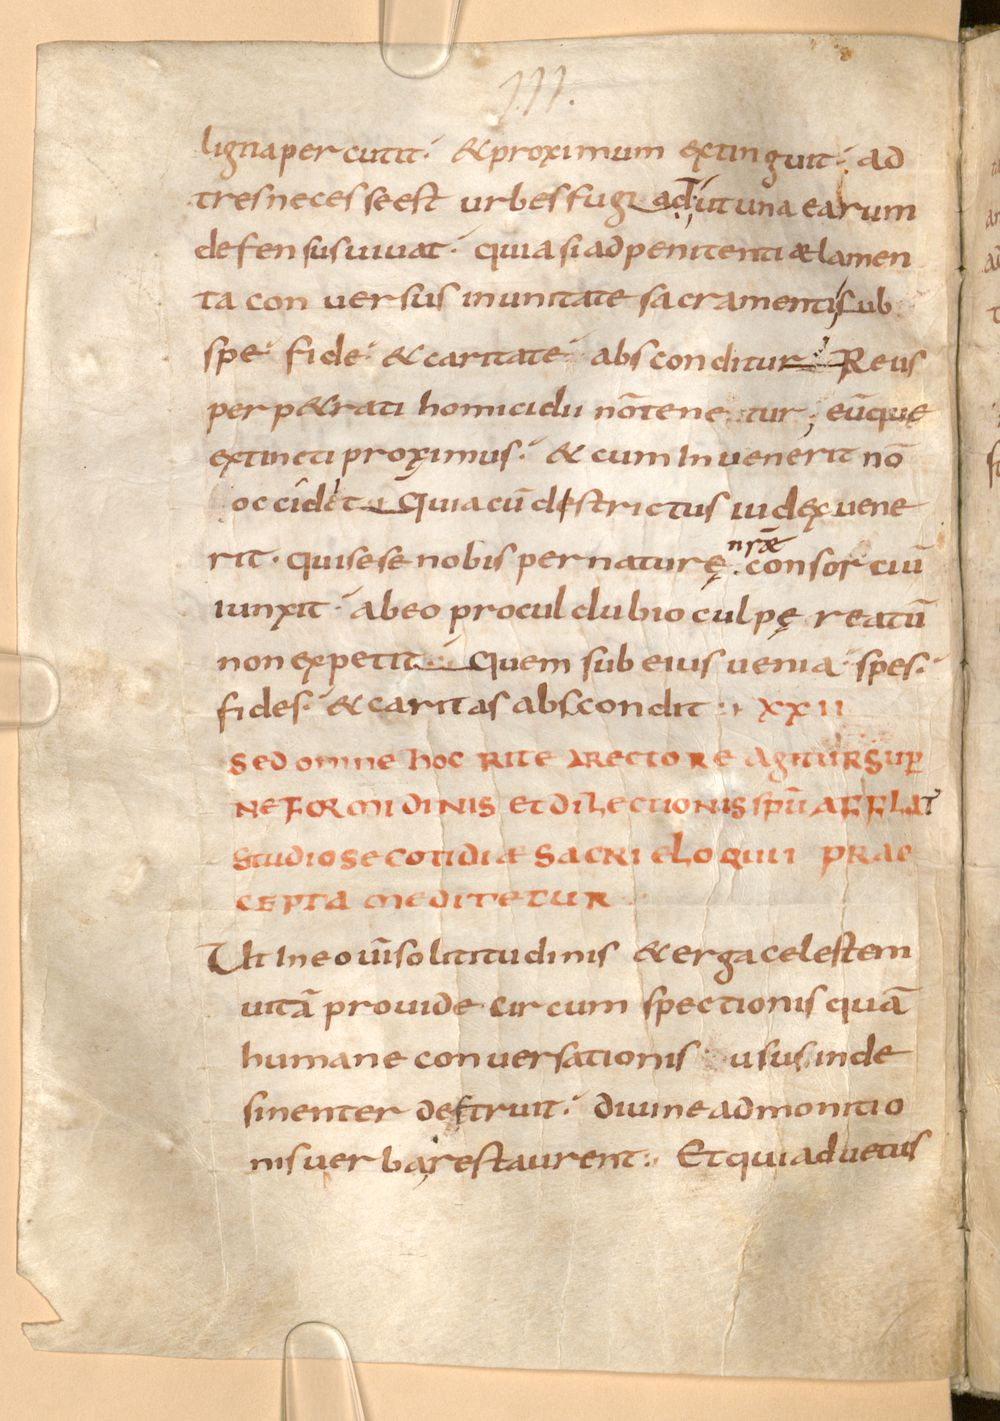 III.
ligna percutit. &proximum extinguit. ad
tres necesse est urbes fugiat ut in una earum
defensus uiuat. quia si ad penitentiæ lamen
ta conuersus in unitate sacramenti sub
spe. fide. & caritate. absconditur. Reus
perp&rati homicidii nōtenetur; eūque
extincti proximus. & cum Inuenerit nō
occidet. Quia cū destrictus iudex uene
rit. qui sese nobis per naturę nr̄æ consorciū
iunxit. ab eo procul dubio culpę reatū
non expetit. Quem sub eius uenia. spes.
fides. & caritas abscondit. XXII
sed omne hoc rite a rectore agitur si suꝑ
ne formidinis et dilectionis spū afflat
studiose cotidiæ sacri eloquii prae
cepta meditetur
Ut In eo uīsolititudinis & erga celestem
uitā prouide circumspectionis quā
humane conuersationis usus inde
sinenter destruit. diuine admonitio
nis uerba restaurent. Et qui ad uetus